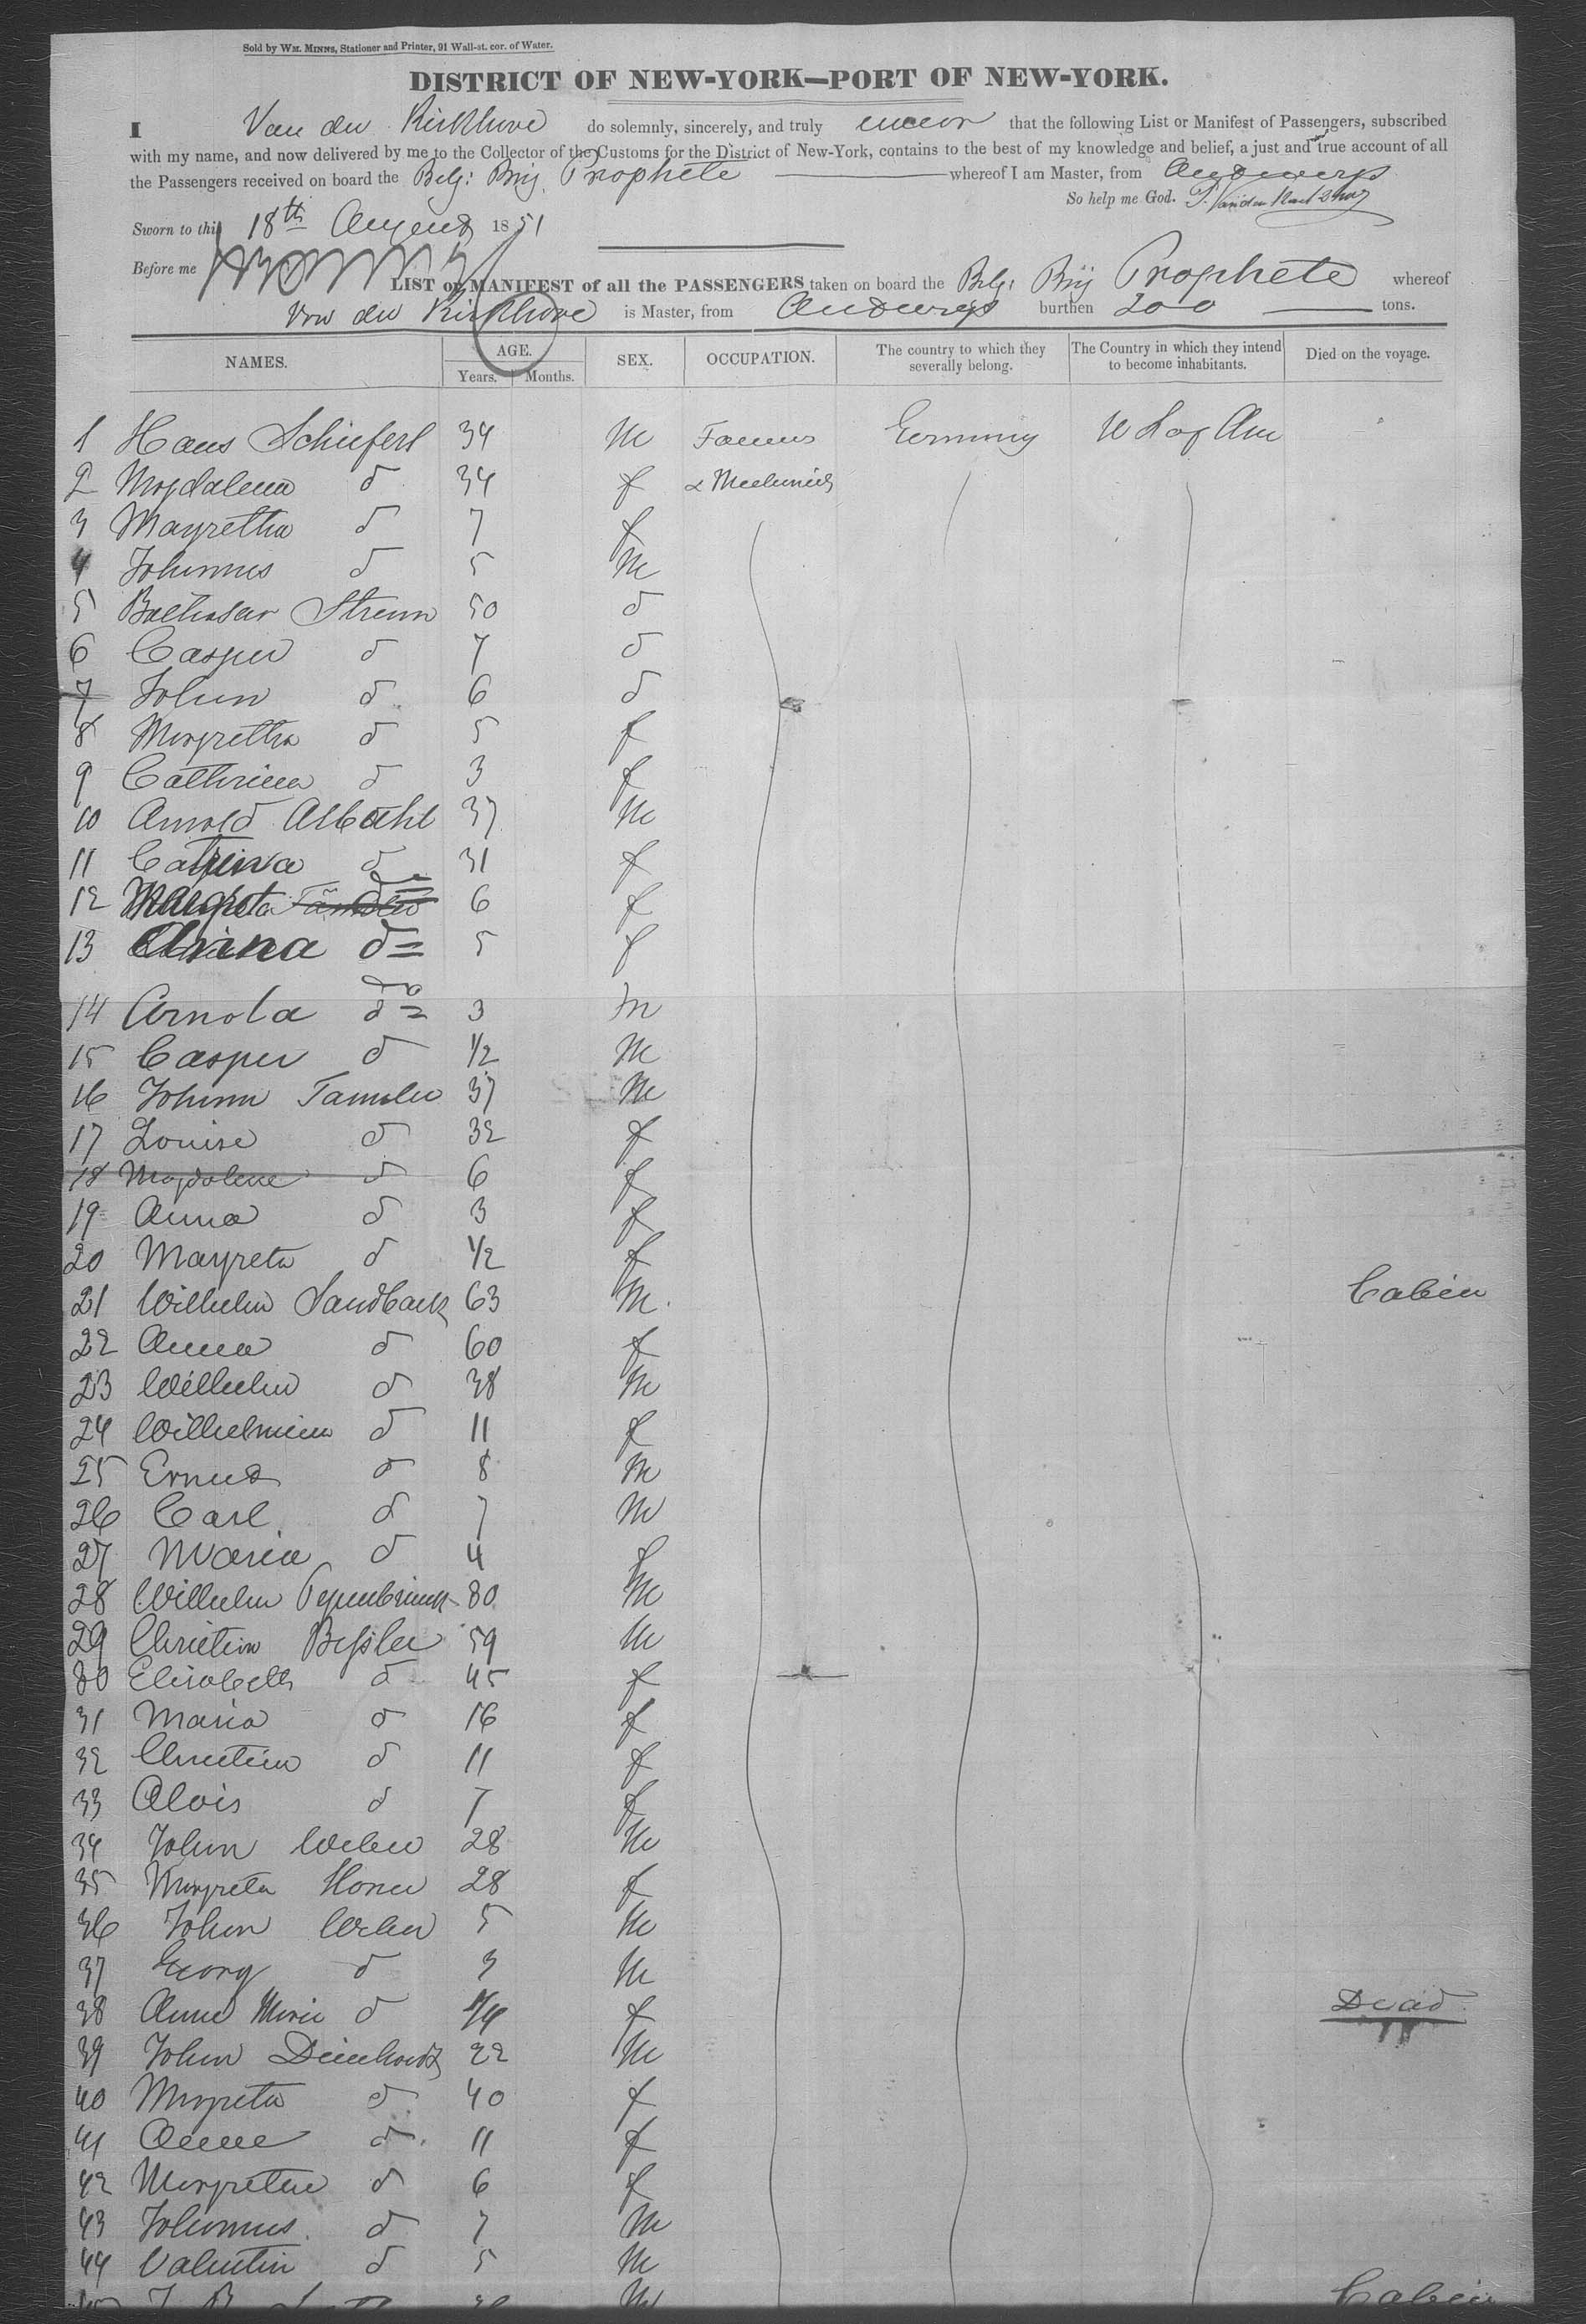 Sold by WM. MINNS, Stationer and Printer, 91 Wall-st. cor. of Water.
DISTRICT OF NEW-YORK—PORT OF NEW-YORK.
I Van den Kerkhove do solemnly, sincerely, and truly swear that the following List or Manifest of Passengers, subscribed
with my name, and now delivered by me to the Collector of the Customs for the District of New-York, contains to the best of my knowledge and belief, a just and true account of all
the Passengers received on board the Belg: Brig Prophete whereof I am Master, from Antwerp
So help me God.
Sworn to this 18th August 1851
Before me
LIST or MANIFEST of all the PASSENGERS taken on board the Belg: Brig Prophete whereof
Van den Kerkhove is Master, from Antwerp burthen 200 tons.
NAMES. AGE. Years. Months. SEX. OCCUPATION. The country to which they severally belong. The Country in which they intend to become inhabitants. Died on the voyage.
1 Hans Schieferl 34 M Farmers Germany U S of Am
2 Magdalena d 34 f & Mechanics
3 Magretha d 7 f
4 Johannes d 5 M
5 Balthasar 50 d
6 Casper d 7 d
7 Johan d 6 d
8 Margretha d 5 f
9 Cathrina d 3 f
10 Arnold 37 M
11 Catrina d 31 f
12 Margreta d 6 f
13 d 5 f
14 Arnold do 3 M
15 Casper d 1/2 M
16 Johann 37 M
17 Louise d 32 f
18 Magdalene d 6 f
19 Anna d 3 f
20 Magreta d 1/2 f
21 Wilhelm Sandback 63 M Cabin
22 Anna d 60 f
23 Wilhelm d 38 M
24 Wilhelmina d 11 f
25 Ernest d 8 M
26 Carl d 7 M
27 Maria d 4 f
28 Wilhelm 30 M
29 Christian Bessler 59 M
30 Elisabeth d 45 f
31 Maria d 16 f
32 Christina d 11 f
33 Alois d 7 f
34 John Weber 28 M
35 Margreta 28 f
36 John Weber 5 M
37 Georg d 3 M
38 Anna Marie d f Dead
39 John 22 M
40 Margreta d 40 f
41 Anna d 11 f
42 Margretha d 6 f
43 Johannes d 7 M
44 Valentin d 5 M
M Cabin